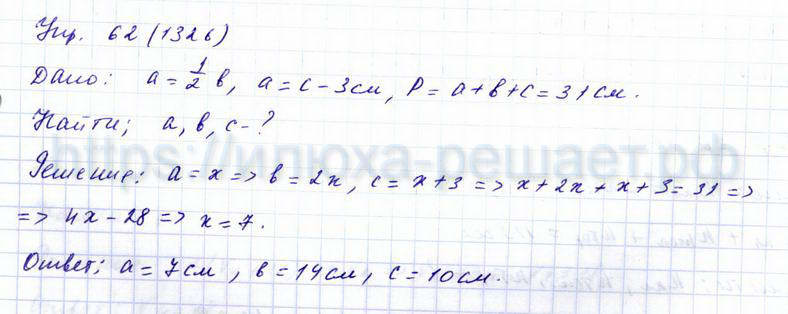 Упр. 62 (1326)
Дано: a = 1/2 в, a = c - 3см, P = a+в+c = 31см.
Найти; a, в, c - ?
https://илюха-решает.рф
Решение: a = x => в = 2x, c = x+3 => x+2x+x+3 = 31 =>
=> 4x - 28 => x = 7.
Ответ; a = 7см, в = 14см, c = 10см.